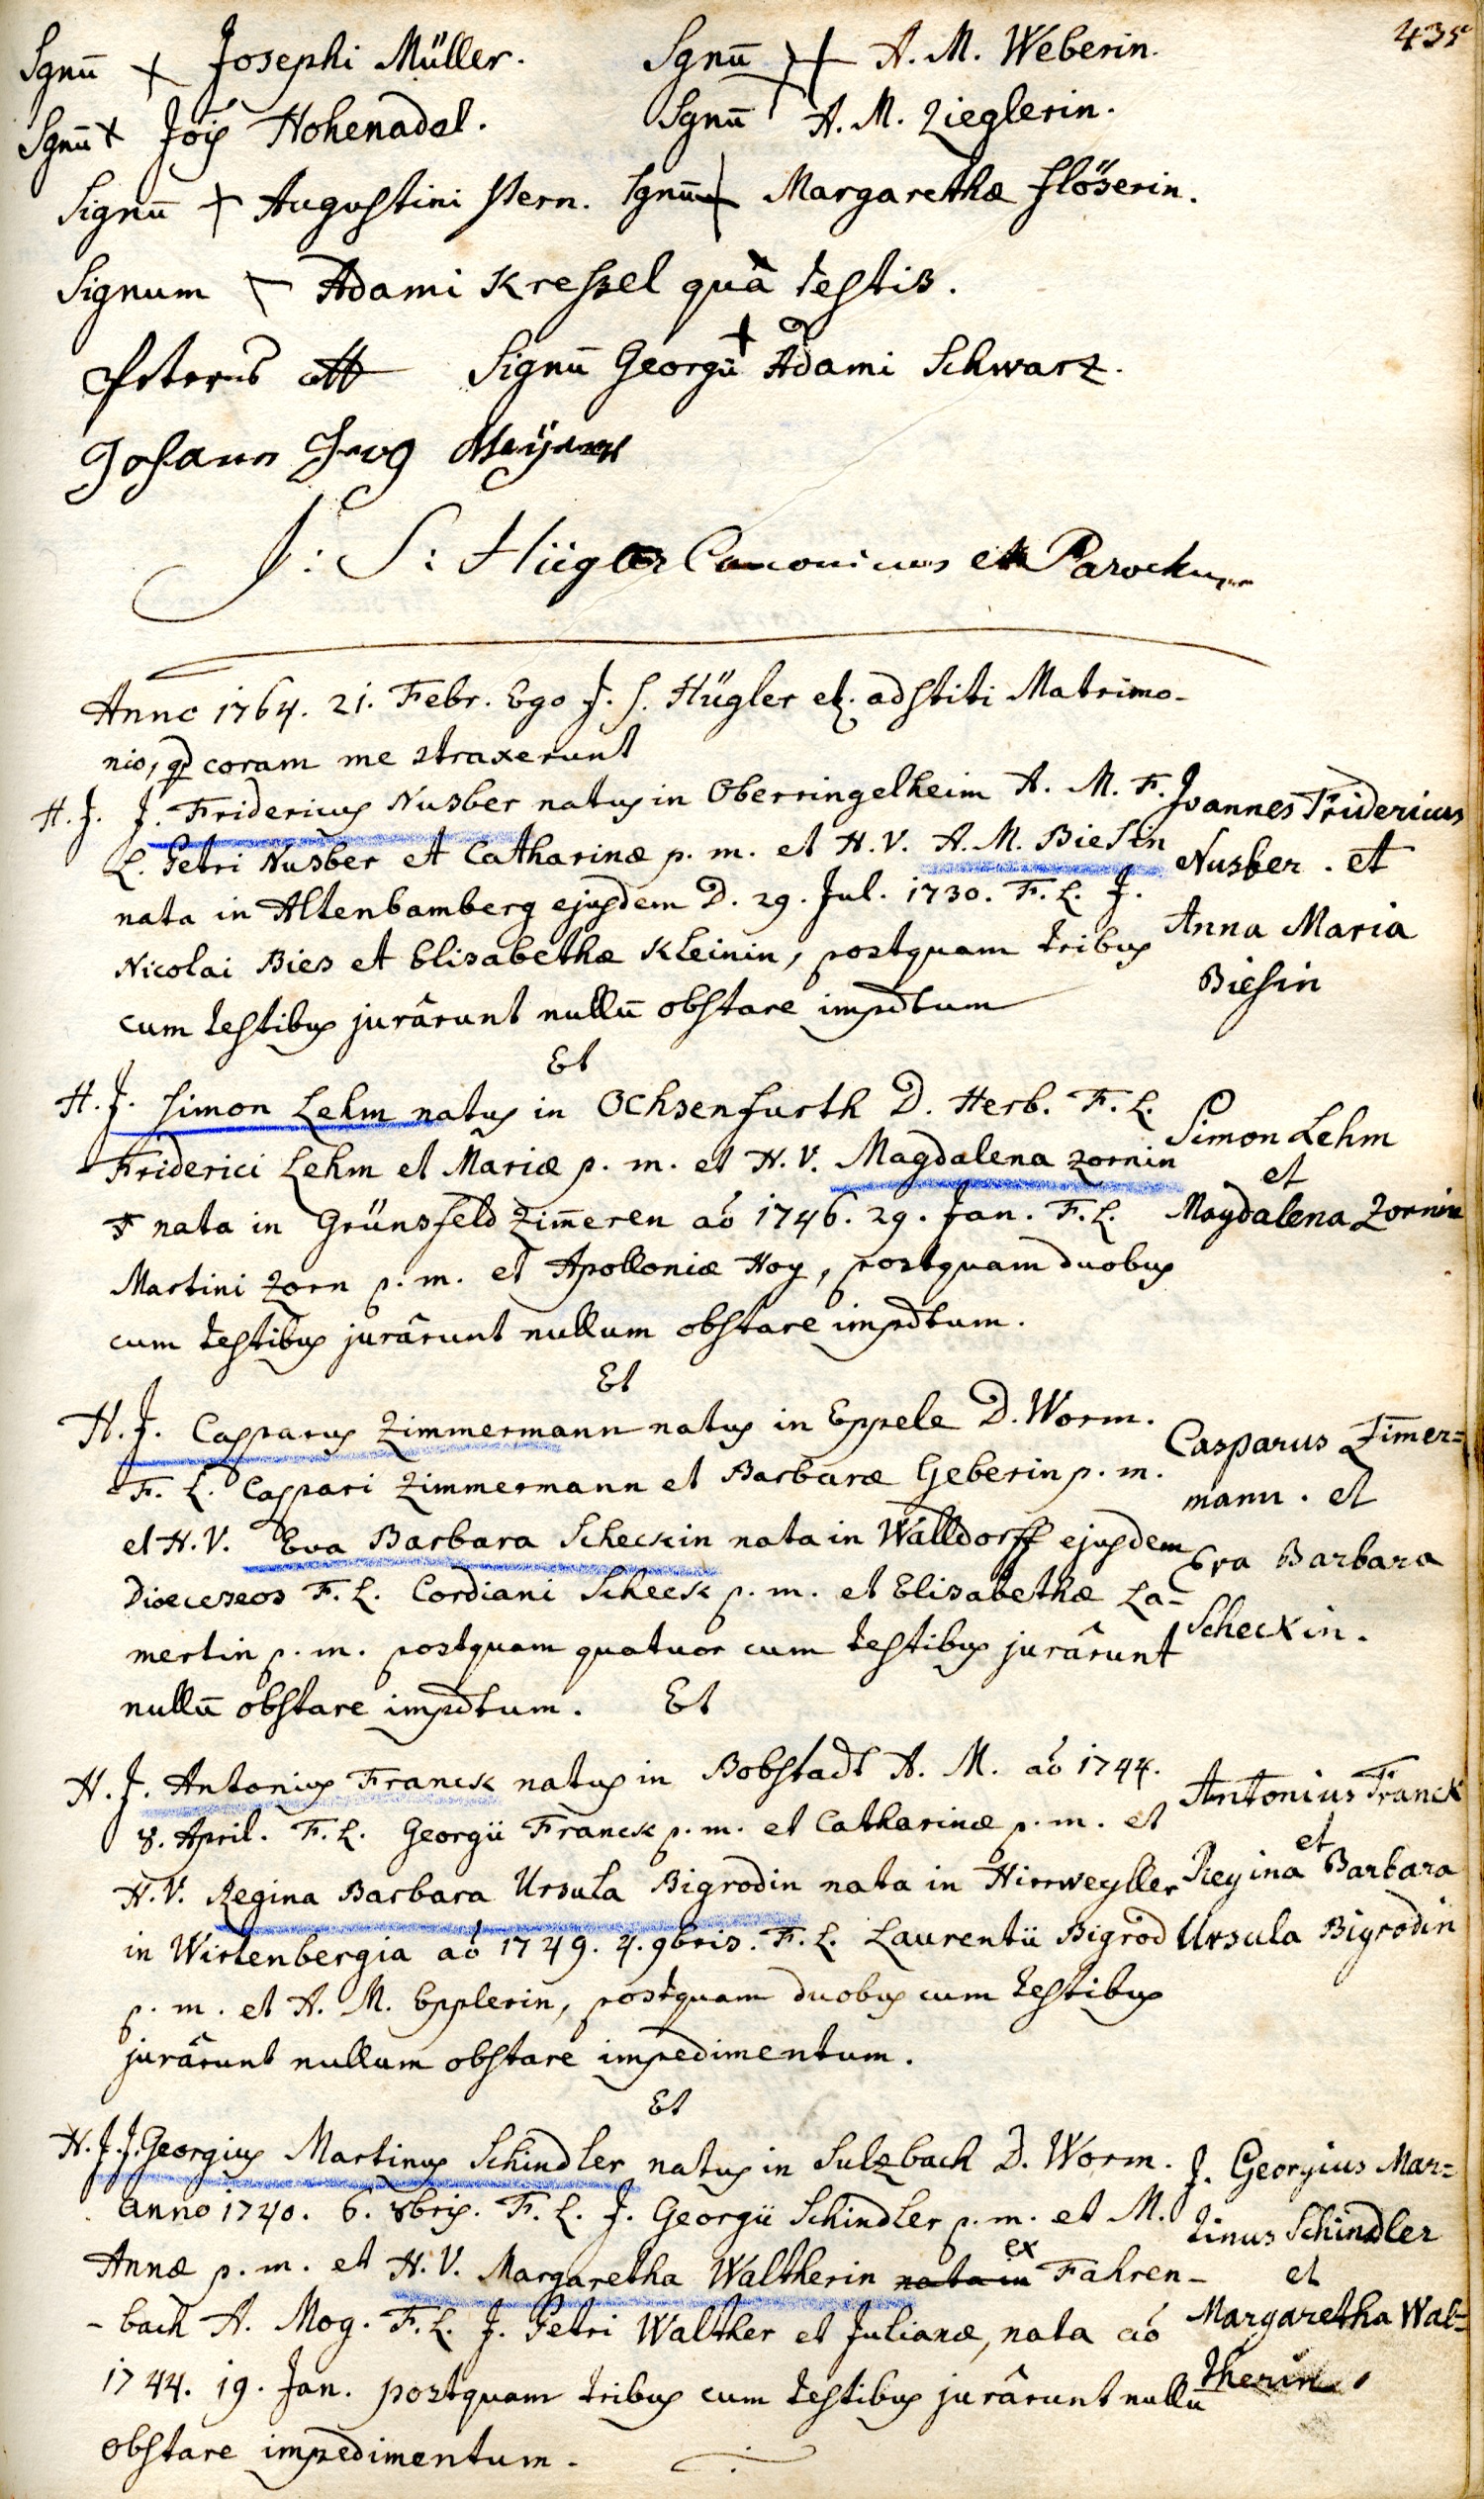 435
Sgnū + Josephi Müller. Sgnū + A. M. Weberin.
Sgnū + Jois Hohenadel. Sgnū A. M. Zieglerin.
Signū + Augustini Stern. Sgnū + Margarethæ Flöserin.
Signum Adami Kressel quà testis.
Peterus Signū Georgii + Adami Schwarz.
Johann Jerg Meÿer
J: S: Hügler Canonicus et Parochus
Anno 1764. 21. Febr. Ego J. S. Hügler etz. adstiti Matrimo-
nio, qd coram me 2traxerunt
H. J. J. Fridericus Nusber natus in Oberringelheim A. M. F.
L. Petri Nusber et Catharinæ p. m. et H. V. A. M. Biesin
nata in Altenbamberg ejusdem D. 29. Jul. 1730. F. L. J.
Nicolai Bies et Elisabethæ Kleinin, postquam tribus
cum testibus jurârunt nullū obstare impdtum
Joannes Fridericus
Nusber. et
Anna Maria
Biesin
Et
H. J. Simon Lehm natus in Ochsenfurth D. Herb. F. L.
Friderici Lehm et Mariæ p. m. et H. V. Magdalena Zornin
nata in Grünsfeld Zim̄eren aō 1746. 29. Jan. F. L.
Martini Zorn p. m. et Apolloniæ Hoy, postquam duobus
cum testibus jurârunt nullum obstare impdtum.
Simon Lehm
et
Magdalena Zornin
Et
H. J. Casparus Zimmermann natus in Eppele D. Worm.
F. L. Caspari Zimmermann et Barbaræ Geberin p. m.
et H. V. Eva Barbara Scheckin nata in Walldorff ejusdem
Dioeceseos F. L. Cordiani Scheck p. m. et Elisabethæ La-
mertin p. m. postquam quatuor cum testibus jurârunt
nullū obstare impdtum. Et
Casparus Zim̄er=
mann. et
Eva Barbara
Scheckin.
H. J. Antonius Franck natus in Bobstadt A. M. aō 1744.
8. April. F. L. Georgii Franck p. m. et Catharinæ p. m. et
H. V. Regina Barbara Ursula Bigrodin nata in Hirrweyller
in Wirtenbergia aō 1749. 4. 9bris. F. L. Laurentii Bigrod
p. m. et A. M. Epplerin, postquam duobus cum testibus
jurârunt nullum obstare impedimentum.
Antonius Franck
et
Regina Barbara
Ursula Bigrodin
Et
H. J. J. Georgius Martinus Schindler natus in Sulzbach D. Worm.
anno 1740. 6. 8bris. F. L. J. Georgii Schindler p. m. et M.
Annæ p. m. et H. V. Margaretha Waltherin nata in ex Fahren-
-bach A. Mog. F. L. J. Petri Walther et Julianæ, nata aō
1744. 19. Jan. postquam tribus cum testibus jurârunt nullū
obstare impedimentum.
J. Georgius Mar=
tinus Schindler
et
Margaretha Wal=
therin.